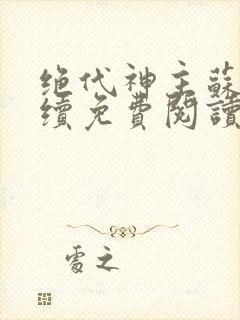 绝代神主蘇
續免費閱讀
處之